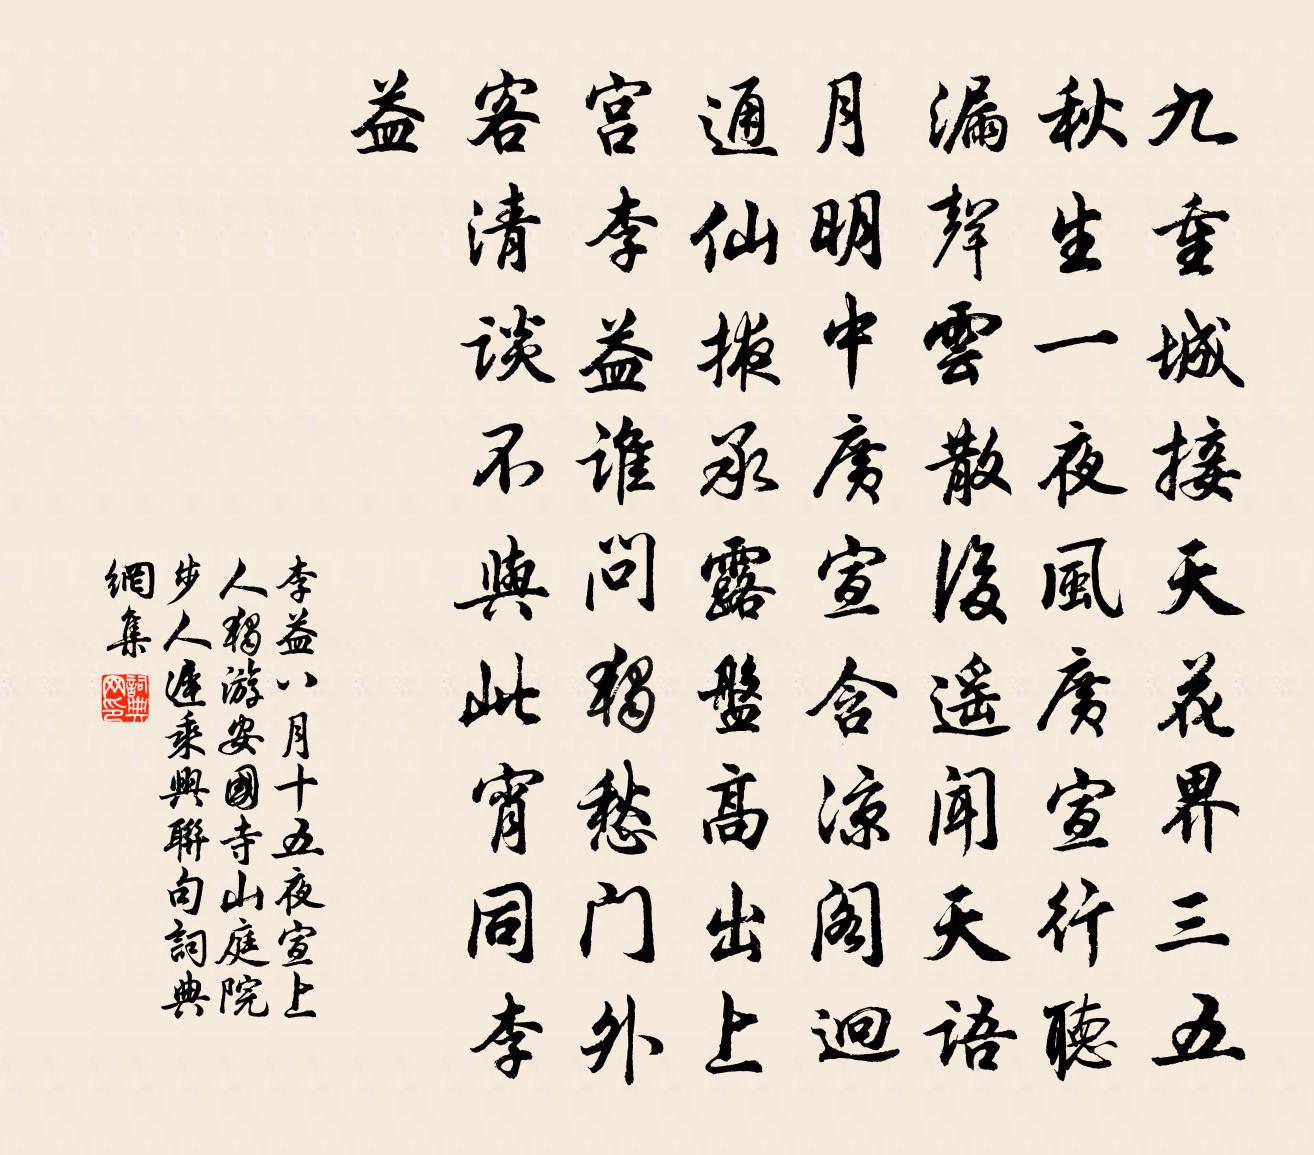 九重城接天花界三五
秋生一夜風廣宣行聽
漏聲雲散後遙聞天語
月明中廣宣含涼閣迥
通仙掖承露盤高出上
宮李益誰問獨愁門外
客清談不與此宵同李
益
李益八月十五夜宣上
人獨游安國寺山庭院
步人遲乘興聯句詞典
網集
詞典网印